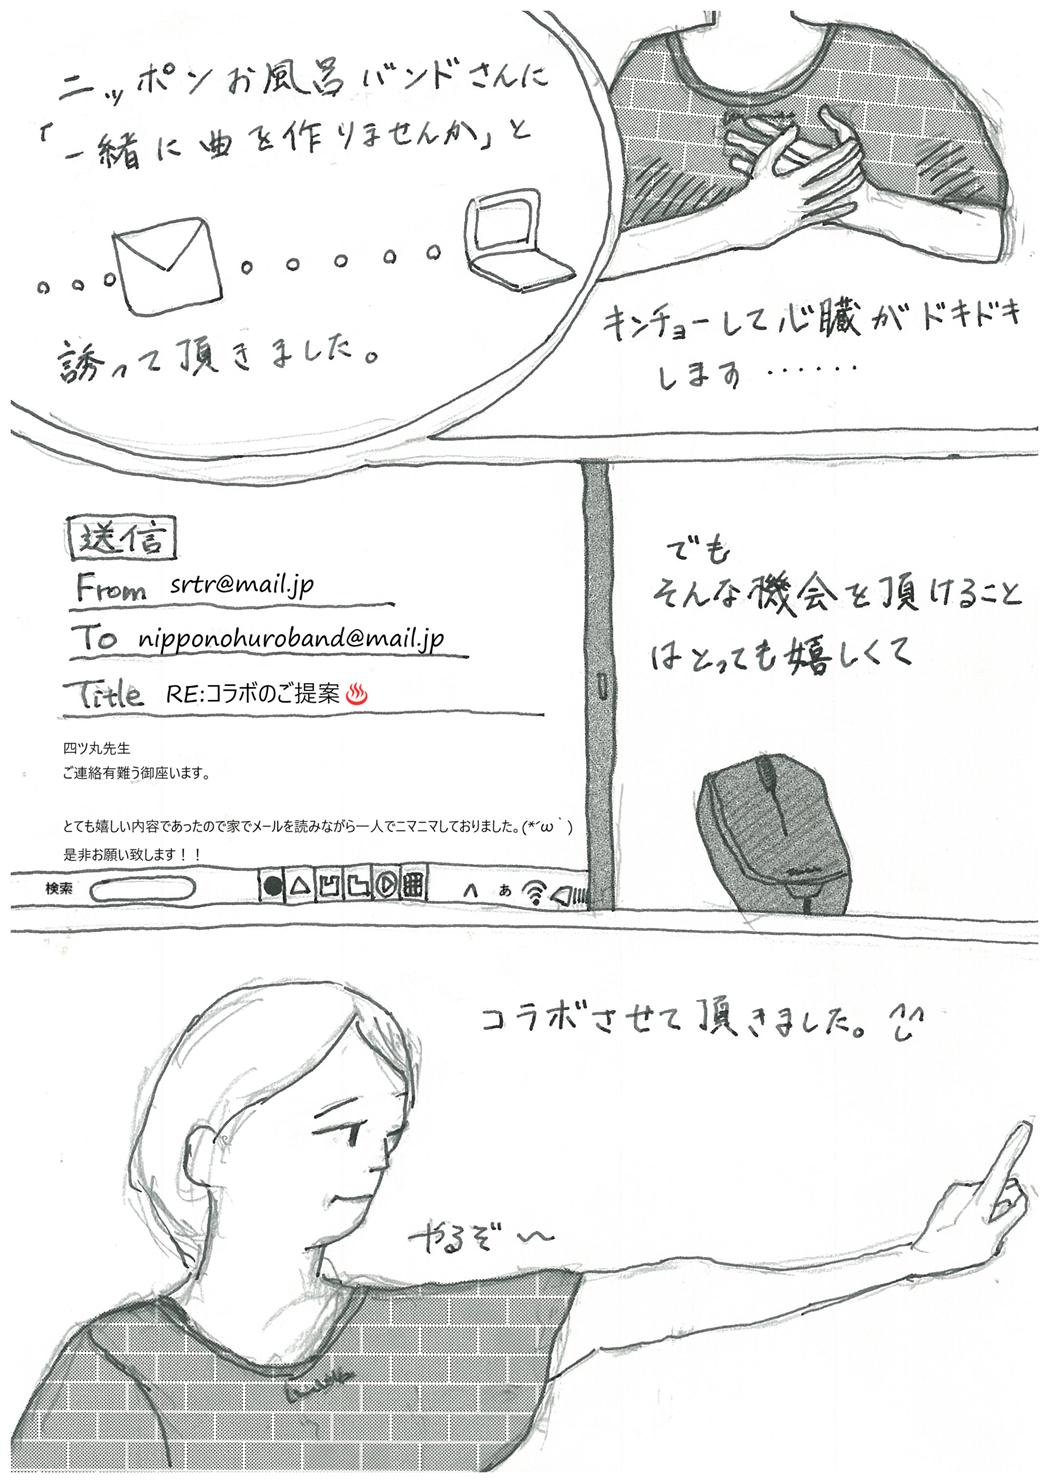 ニッポンお風呂バンドさんに
「一緒に曲を作りませんか」と
誘って頂きました。
キンチョーして心臓がドキドキ
します……
送信
From srtr@mail.jp
To nipponohuroband@mail.jp
Title RE:コラボのご提案♨
四ツ丸先生
ご連絡有難う御座います。
とても嬉しい内容であったので家でメールを読みながら一人でニマニマしておりました。(*´ω｀)
是非お願い致します！！
検索
あ
でも
そんな機会を頂けること
はとっても嬉しくて
コラボさせて頂きました。^^
やるぞ〜